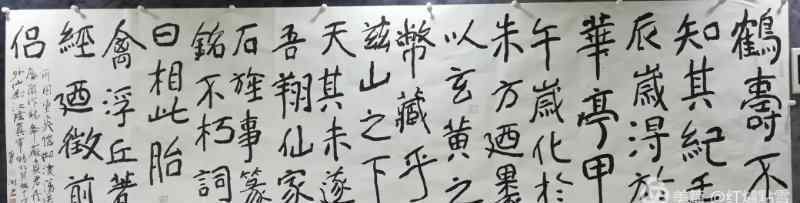 鶴壽不
知其紀壬
辰歲得於
華亭甲
午歲化於
朱方廼裹
以玄黃之
幣藏乎
茲山之下
天其未遂
吾翔仙家
石旌事篆
銘不朽詞
曰相此胎
禽浮丘著
經廼徵前
侶
美篇 @红爐點雪